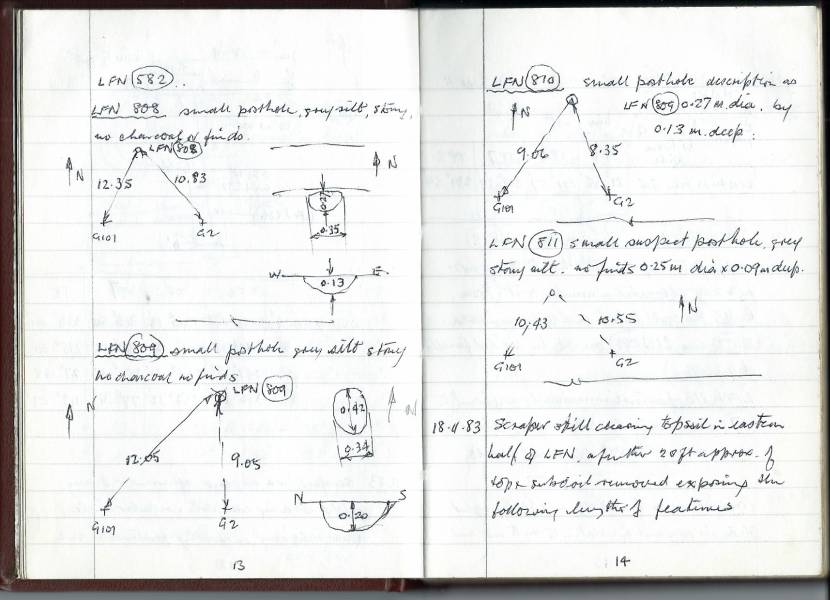 LFN 582 ..
LFN 808 small posthole, grey silt, stony,
no charcoal or finds.
LFN 808
N
12.35
10.83
G101
G2
N
0.27
0.35
W
E
0.13
LFN 809 small posthole grey silt stony
no charcoal no finds
LFN 809
N
12.05
9.05
G101
G2
N
0.42
0.34
N
S
0.20
13
LFN 810 small posthole description as
LFN 809 0.27 m. dia. by
0.13 m. deep.
N
9.06
8.35
G101
G2
LFN 811 small suspect posthole, grey
stony silt. no finds 0.25m dia x 0.09m deep.
N
10,43
10.55
G101
G2
18.11.83 Scraper still clearing topsoil in eastern
half of LFN, a further 20ft approx. of
top & subsoil removed exposing the
following length of features
14